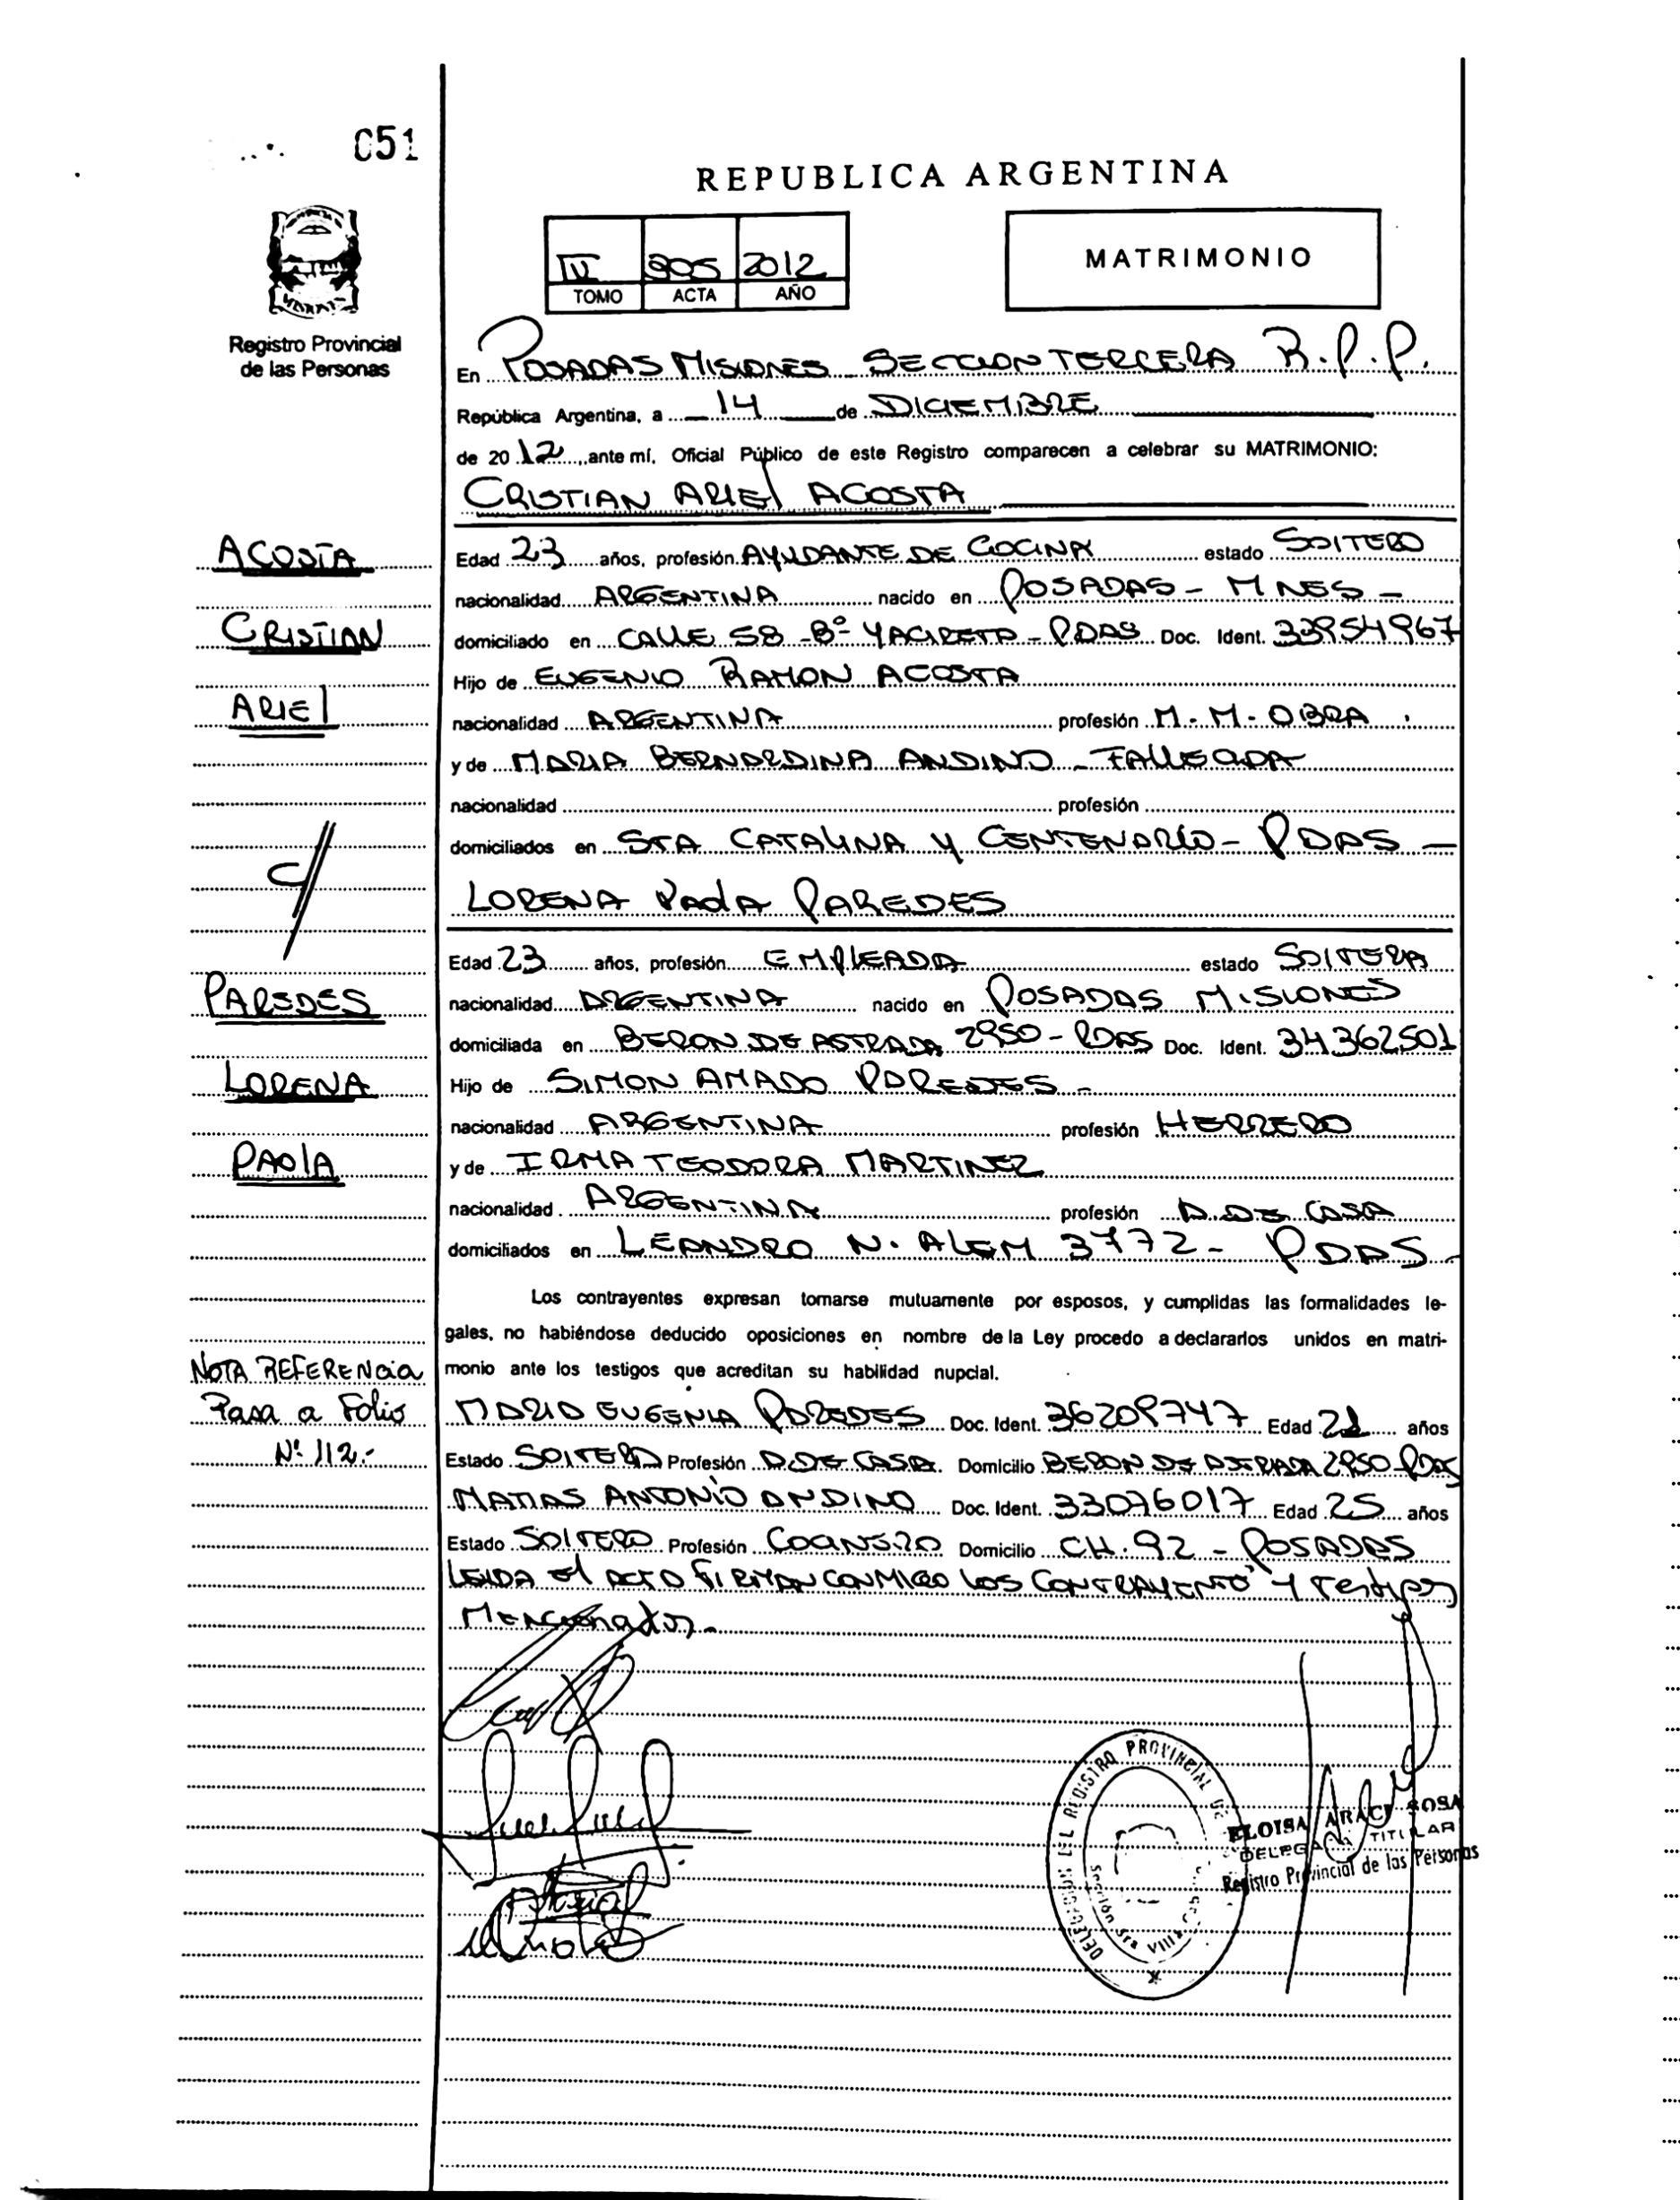 051
REPUBLICA ARGENTINA
IV 905 2012
TOMO ACTA AÑO
MATRIMONIO
Registro Provincial
de las Personas
En POSADAS MISIONES SECCION TERCERA R.P.P.
República Argentina, a 14 de DICIEMBRE
de 2012, ante mí, Oficial Público de este Registro comparecen a celebrar su MATRIMONIO:
CRISTIAN ARIEL ACOSTA
ACOSTA
CRISTIAN
ARIEL
Edad 23 años, profesión AYUDANTE DE COCINA estado SOLTERO
nacionalidad ARGENTINA nacido en POSADAS - MNES -
domiciliado en CALLE 58 - Bº YACIRETA - PDAS Doc. Ident. 33954967
Hijo de EUGENIO RAMON ACOSTA
nacionalidad ARGENTINA profesión M.M.OBRA.
y de MARIA BERNARDINA ANDINO - FALLECIDA
nacionalidad profesión
domiciliados en STA CATALINA Y CENTENARIO - PDAS -
C/
LORENA PAOLA PAREDES
PAREDES
LORENA
PAOLA
Edad 23 años, profesión EMPLEADA estado SOLTERA
nacionalidad ARGENTINA nacido en POSADAS MISIONES
domiciliada en BERON DE ASTRADA 2950 - PDAS Doc. Ident. 34362501
Hijo de SIMON AMADO PAREDES -
nacionalidad ARGENTINA profesión HERRERO
y de IRMA TEODORA MARTINEZ
nacionalidad ARGENTINA profesión A.DE CASA
domiciliados en LEANDRO N. ALEM 3772 - PDAS -
Los contrayentes expresan tomarse mutuamente por esposos, y cumplidas las formalidades le-
gales, no habiéndose deducido oposiciones en nombre de la Ley procedo a declararlos unidos en matri-
monio ante los testigos que acreditan su habilidad nupcial.
NOTA REFERENCIA
Pasa a Folio
Nº 112.-
MARIA EUGENIA PAREDES Doc. Ident. 36209747 Edad 21 años
Estado SOLTERA Profesión A.DE CASA Domicilio BERON DE ASTRADA 2950 PDAS
MATIAS ANTONIO ANDINO Doc. Ident. 33076017 Edad 25 años
Estado SOLTERO Profesión COCINERO Domicilio CH. 92 - POSADAS
LEIDA EL ACTA FIRMAN CONMIGO LOS CONTRAYENTES Y Testigos
Mencionados.
DELEGACION DEL REGISTRO PROVINCIAL DE
Sección 3ra
ELOISA ARACI SOSA
DELEGADA TITULAR
Registro Provincial de las Personas